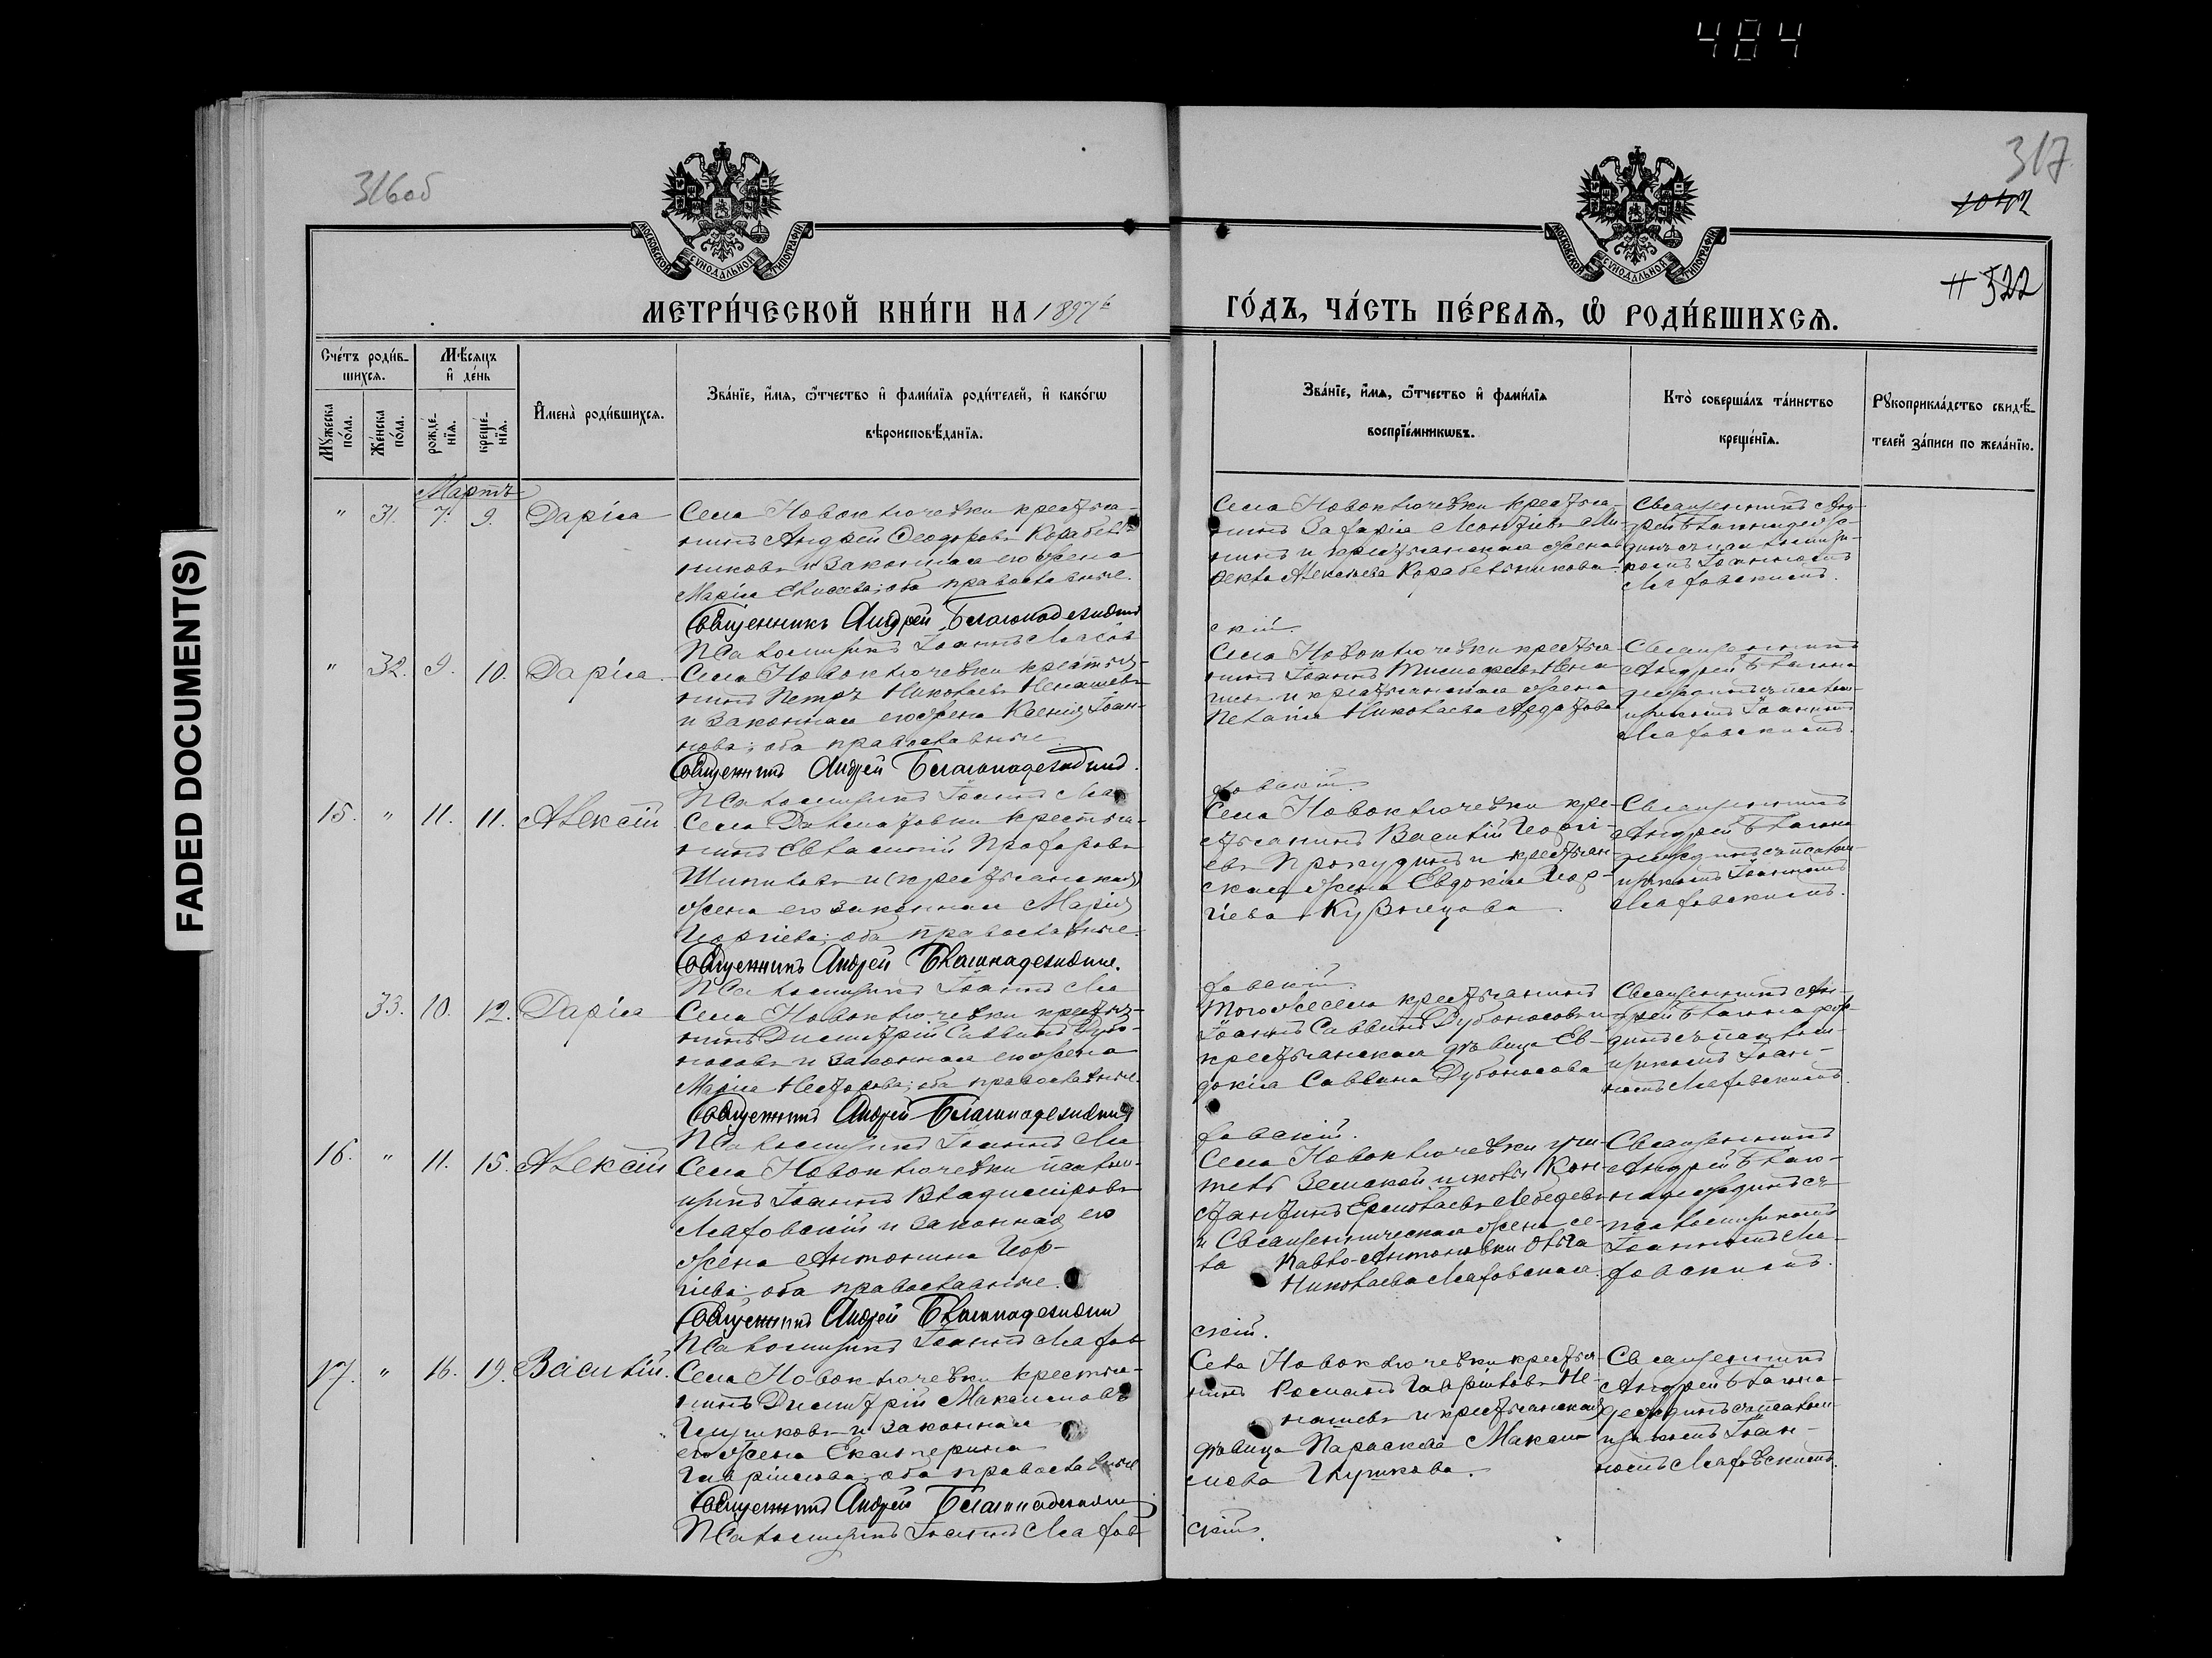 484
FADED DOCUMENT(S)
316об
317
1042
# 522
МОСКОВСКОЙ СѴНОДАЛЬНОЙ ТИПОГРАФІИ
МОСКОВСКОЙ СѴНОДАЛЬНОЙ ТИПОГРАФІИ
МЕТРИ́ЧЕСКОЙ КНИ́ГИ НА 1897й
ГО́ДЪ, ЧА́СТЬ ПЕ́РВАѦ, Ѿ РОДИ́ВШИХСѦ.
Сче́тъ роди́в-
шихсѧ.
Мѣ́сѧцъ
и҆ де́нь
Мꙋ́жеска по́ла.
Же́нска по́ла.
рожде́-
нїѧ.
креще́-
нїѧ.
И҆мена̀ роди́вшихсѧ.
Зва́нїе, и҆́мѧ, ѻ҆́тчество и҆ фами́лїѧ роди́телей, и҆ како́гѡ
вѣроисповѣ́данїѧ.
Зва́нїе, и҆́мѧ, ѻ҆́тчество и҆ фами́лїѧ
воспрїе́мникѡвъ.
Кто̀ соверша́лъ та́инство
креще́нїѧ.
Рꙋкоприкла́дство свидѣ́-
телей за́писи по жела́нїю.
Мартъ
" 31. 7. 9. Дарія
Села Новоключевки крестья-
нинъ Андрей Ѳеодоровъ Корабель-
никовъ и законная его жена
Марія Елисеева; оба православные.
Священникъ Андрей Благонадеждинъ
Псаломщикъ Іоаннъ Мазов
Села Новоключевки крестья-
нинъ Захарія Леонтіевъ Ми-
нинъ и крестьянская жена
Ѳекла Алексеева Корабельникова.
скій.
Священникъ Анд-
рей Благонадеж-
динъ съ псаломщи-
комъ Іоанномъ
Мазовскимъ.
" 32. 9. 10. Дарія.
Села Новоключевки крестья-
нинъ Петръ Николаевъ Ненашевъ
и законная его жена Ксенія Іоан-
нова; оба православные.
Священникъ Андрей Благонадеждинъ.
Псаломщикъ Іоаннъ Ма
Села Новоключевки крестья
нинъ Іоаннъ Тимофеевъ Нена
шевъ и крестьянская жена
Пелагія Николаева Ардатова
зовскій.
Священникъ
Андрей Благона
деждинъ съ псалом-
щикомъ Іоанномъ
Мазовскимъ.
15. " 11. 11. Алексій
Села Далматовки крестья-
нинъ Евлампій Прохоровъ
Шипиловъ и (крестьянская)
жена его законная Марія
Георгіева; оба православные.
Священникъ Андрей Благонадеждинъ.
Псаломщикъ Іоаннъ Ма
Села Новоключевки кре-
стьянинъ Василій Георгі-
евъ Прокудинъ и крестьян-
ская жена Евдокія Геор-
гіева Кузнецова.
зовскій.
Священникъ
Андрей Благона
деждинъ съ псалом-
щикомъ Іоанномъ
Мазовскимъ.
33. 10. 12. Дарія
Села Новоключевки крестья-
нинъ Димитрій Саввинъ Дубо-
носовъ и законная его жена
Марія Несторова; оба православные.
Священникъ Андрей Благонадеждинъ
Псаломщикъ Іоаннъ Ма
Того же села крестьянинъ
Іоаннъ Саввинъ Дубоносовъ и
крестьянская дѣвица Ев-
докія Саввина Дубоносова
зовскій.
Священникъ Ан-
дрей Благонадеж-
динъ съ псалом-
щикомъ Іоан-
номъ Мазовскимъ.
16. " 11. 15. Алексій
Села Новоключевки псалом-
щикъ Іоаннъ Владиміровъ
Мазовскій и законная его
жена Антонина Геор-
гіева; оба православные.
Священникъ Андрей Благонадеждинъ
Псаломщикъ Іоаннъ Мазов
Села Новоключевки учи-
тель Земской школы Кон-
стантинъ Ермолаевъ Лебедевъ
и Священническая жена се-
ла Павло-Антоновки Ольга
Николаева Мазовская.
скій.
Священникъ
Андрей Благо-
надеждинъ съ
псаломщикомъ
Іоанномъ Ма-
зовскимъ.
17. " 16. 19. Василій.
Села Новоключевки крестья-
нинъ Димитрій Максимовъ
Глушковъ и законная
его жена Екатерина
Гавріилова; оба православные
Священникъ Андрей Благонадеждинъ
Псаломщикъ Іоаннъ Мазов
Села Новоключевки крестья-
нинъ Романъ Гавріиловъ Не-
нашевъ и крестьянская
дѣвица Параскева Макси
мова Глушкова.
скій.
Священникъ
Андрей Благона-
деждинъ съ псалом-
щикомъ Іоан-
номъ Мазовскимъ.